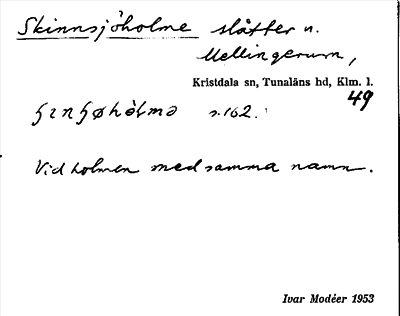 Skinnsjöholme slåtter u.
Mellingerum,
Kristdala sn, Tunaläns hd, Klm. l.
49
s. 162.
Vid holmen med samma namn.
Ivar Modéer 1953